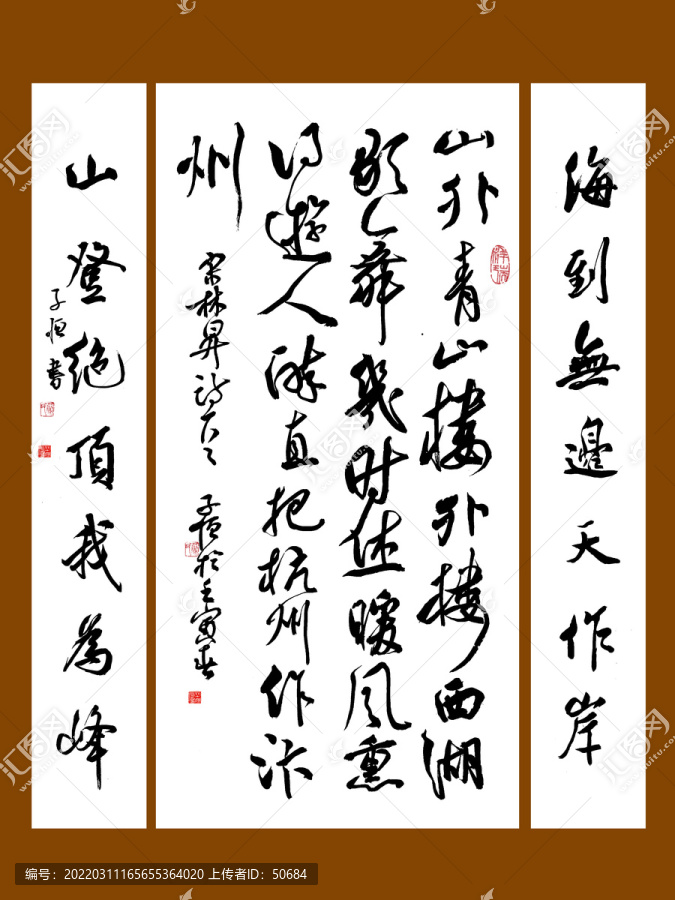 海到無邊天作岸
山外青山楼外楼西湖
歌舞幾时休暖风熏
得遊人醉直把杭州作汴
州
宋林昇詩
子恒於壬寅春
山登绝頂我為峰
子恒書
编号：20220311165655364020 上传者ID：50684